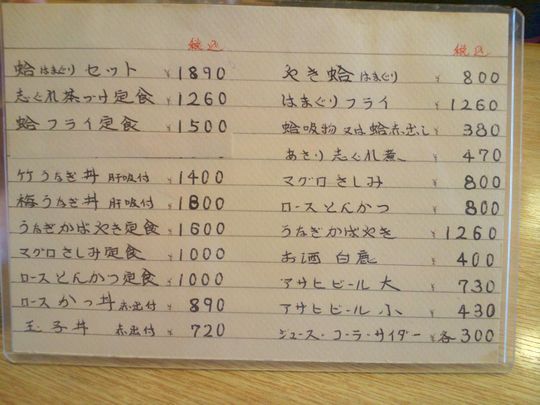 税込
蛤はまぐりセット ¥1890
志ぐれ茶づけ定食 ¥1260
蛤フライ定食 ¥1500
竹うなぎ丼 肝吸付 ¥1400
梅うなぎ丼 肝吸付 ¥1800
うなぎかばやき定食 ¥1600
マグロさしみ定食 ¥1000
ロースとんかつ定食 ¥1000
ロースかつ丼 赤出付 ¥890
玉子丼 赤出付 ¥720
税込
やき蛤はまぐり ¥800
はまぐりフライ ¥1260
蛤吸物又は蛤赤出し ¥380
あさり志ぐれ煮 ¥470
マグロさしみ ¥800
ロースとんかつ ¥800
うなぎかばやき ¥1260
お酒 白鹿 ¥400
アサヒビール 大 ¥730
アサヒビール 小 ¥430
ジュース・コーラ・サイダー ¥各300